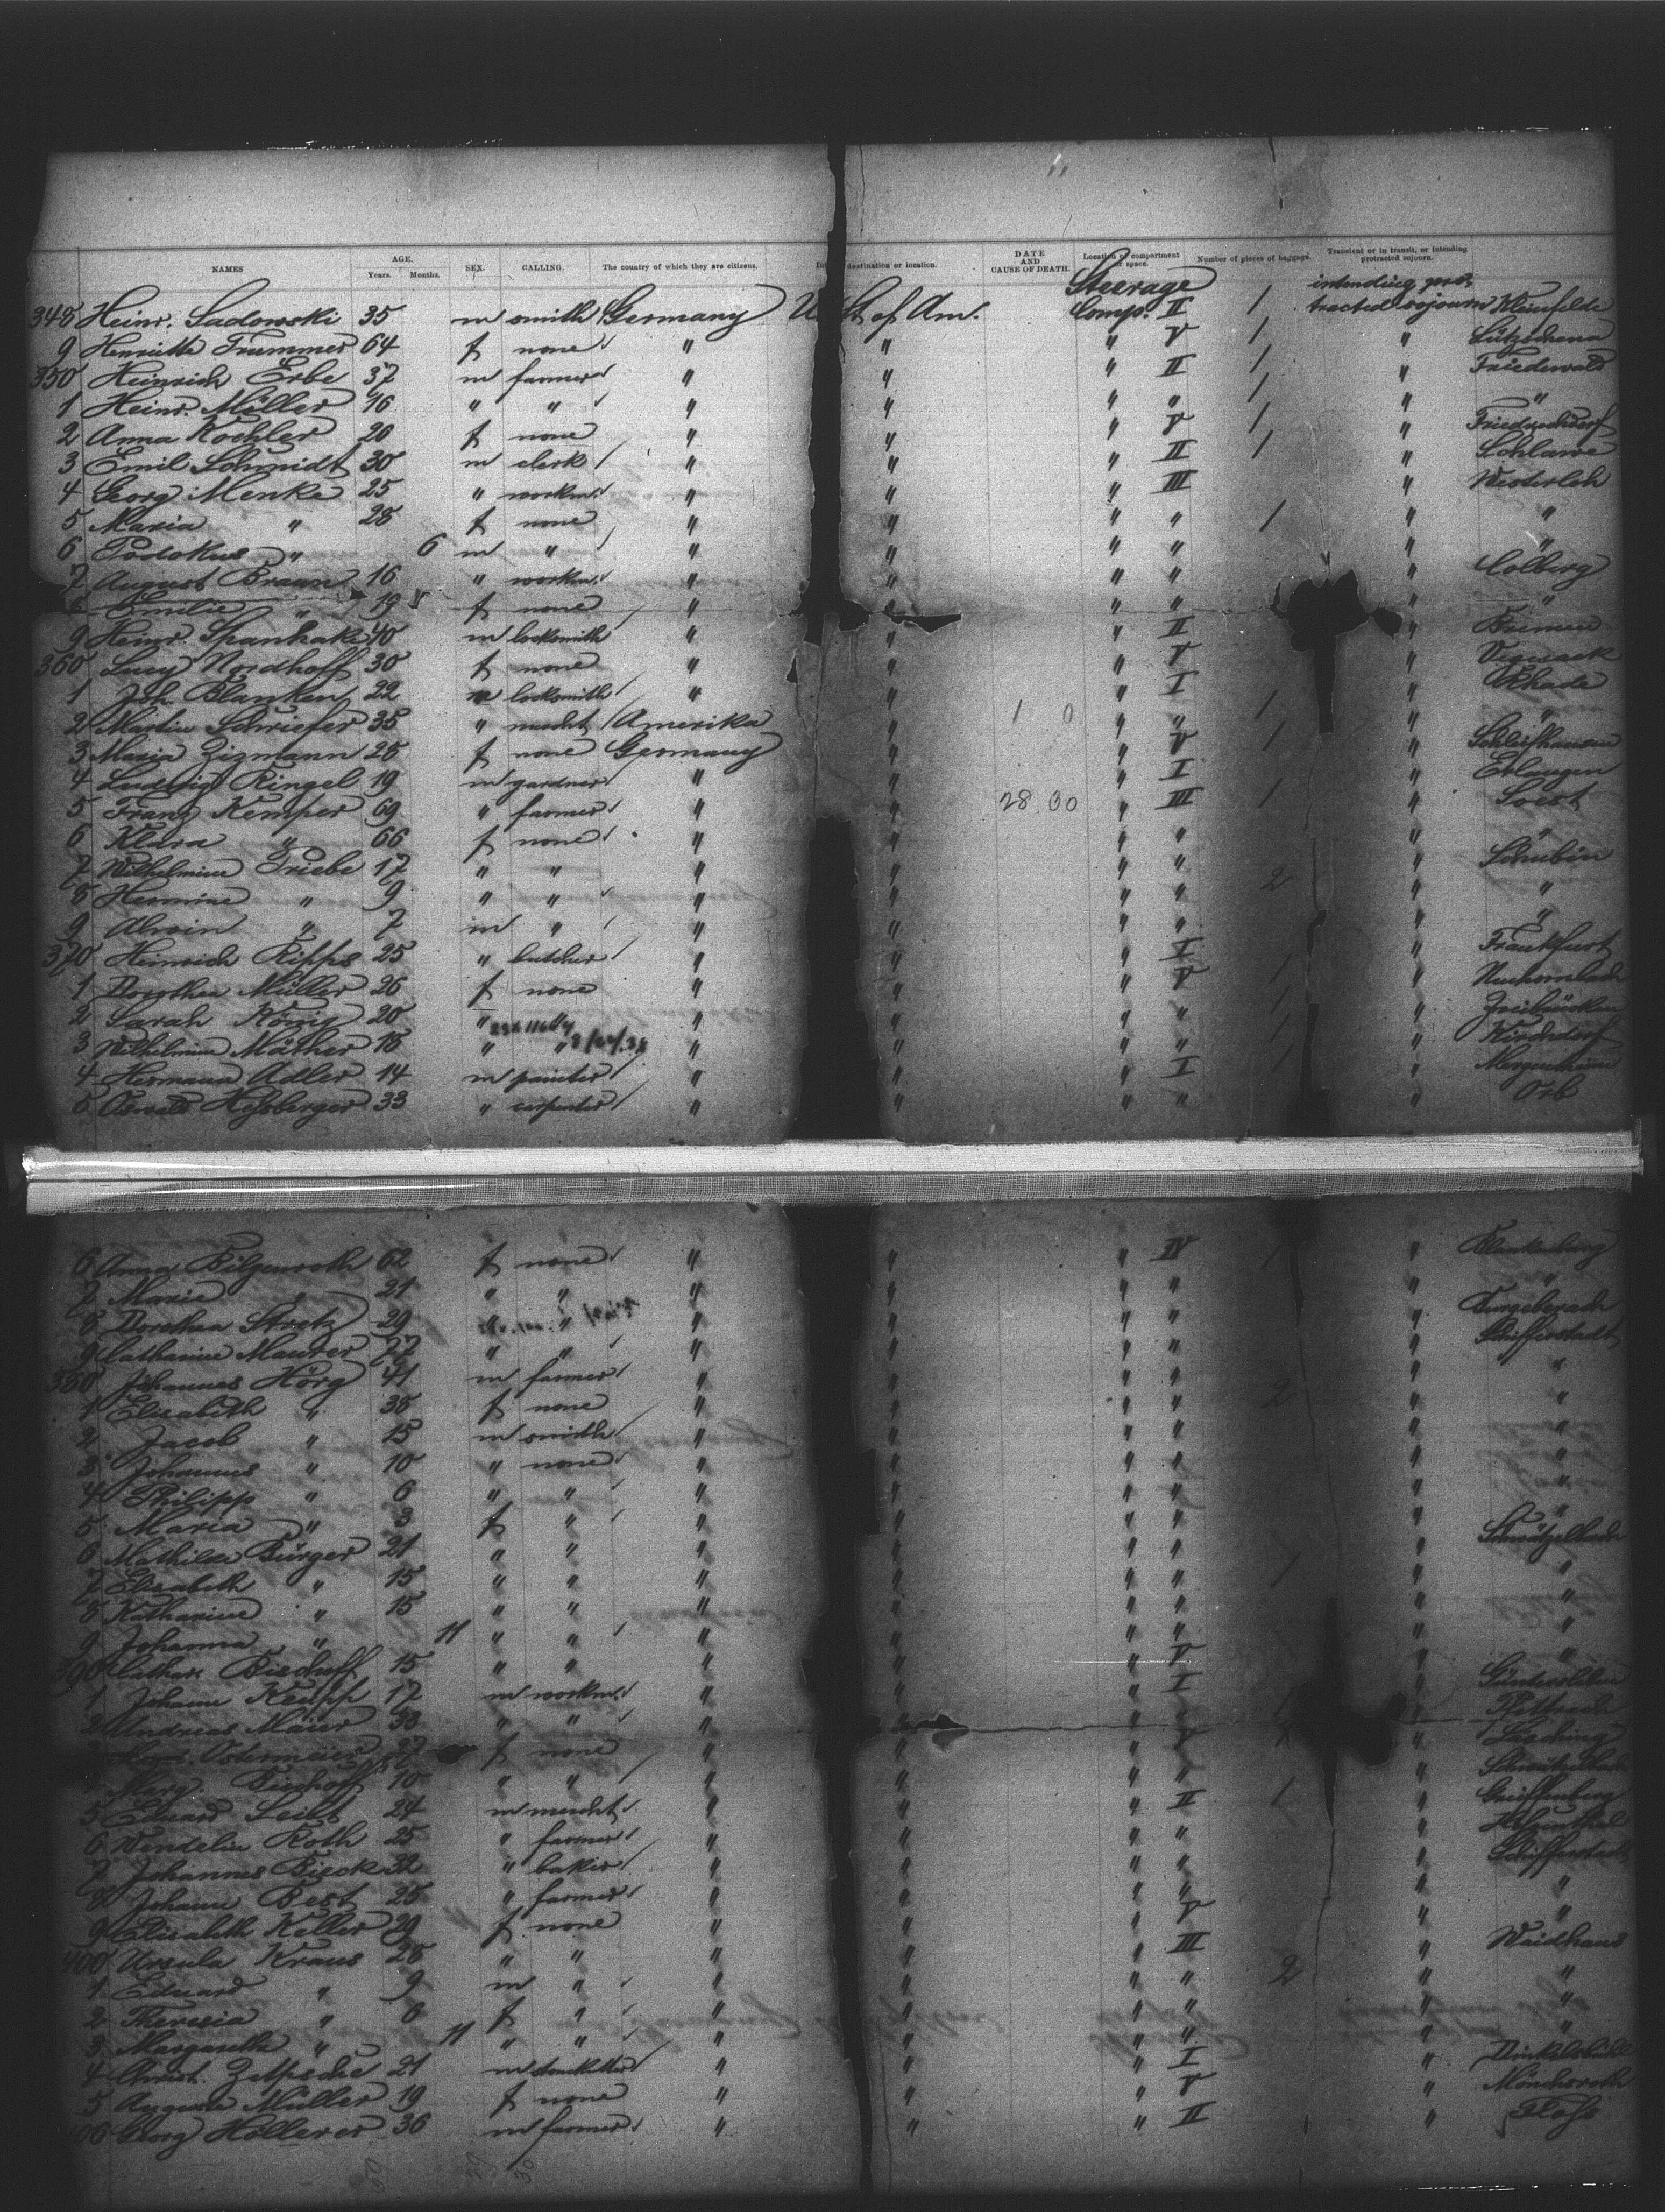 NAMES AGE. Years. Months. SEX. CALLING. The country of which they are citizens. destination or location. DATE AND CAUSE OF DEATH. Location of compartment or space. Number of pieces of baggage. Transient or in transit, or intending protracted sojourn.
348 Heinr. Sadowski 35 m smith Germany U St of Am. Steerage Comp. II 1 intending protracted sojourn Kleinfelde
9 Henriette Trummer 64 f none " " " V 1 "
350 Heinrich Erbe 37 m farmer " " " II 1 " Friedewald
1 Heinr. Müller 16 " " " " " " 1 " "
2 Anna Kochler 20 f none " " " V 1 "
3 Emil Schmidt 30 m clerk " " " II 1 " Schlawe
4 Georg Menke 25 " workm. " " " III " Westerloh
5 Maria " 28 f none " " " " 1 " "
6 " 6 m " " " " " " "
7 August Braun 16 " workm. " " " " " Colberg
8 Emilie " 19 f none " " " " " "
9 Heinr. Spanhake 40 m locksmith " " " II " Bremen
360 Lucy Nordhoff 30 f none " " " V "
1 Joh. Blanken 22 m locksmith " " " I " Rhade
2 Martin Schriefer 35 " mercht Amerika " 1 0 " " 1 " "
3 Maria Zizmann 28 f none Germany " " V 1 "
4 Ludwig Ringel 19 m gardner " " " I " Erlangen
5 Franz Kemper 69 " farmer " " 28 00 " III 1 " Soest
6 Klara " 66 f none " " " " " "
7 Wilhelmine Triebe 17 " " " " " " " Schubin
8 Hermine " 9 " " " " " " 2 " "
9 Alwin " 7 m " " " " " " "
370 Heinrich Ripps 25 " butcher " " " I " Frankfurt
1 Dorothea Müller 26 f none " " " V 1 "
2 Sarah König 20 " " " " " " 1 " Zweibrücken
3 Wilhelmine Mäther 18 " " " " " " 1 " Kirchdorf
4 Hermann Adler 14 m painter " " " I 1 " Mergentheim
5 Oswald Heßberger 33 " carpenter " " " " " Orb
6 Anna Bilzenroth 62 f none " " " IV 1 " Blankenburg
7 Marie 21 " " " " " " " "
8 Dorothea Stretz 29 " " " " " " " Burgebrach
9 Catharine Maurer 27 " " " " " " " Schifferstadt
380 Johannes Hörg 41 m farmer " " " " " "
1 Elisabeth " 38 f none " " " " 2 " "
2 Jacob " 15 m smith " " " " " "
3 Johannes " 10 " none " " " " " "
4 Philipp " 6 " " " " " " " "
5 Maria " 3 f " " " " " " "
6 Mathilde Bürger 21 " " " " " " "
7 Elisabeth " 15 " " " " " " 1 " "
8 Katharine " 15 " " " " " " " "
9 Johanna " 11 " " " " " " " "
390 Cathar. Bischoff 15 " " " " " V " "
1 Johann Kempf 17 m workm. " " " I "
2 Andreas Maier 38 " " " " " " 1 "
3 Ostermeier 27 f none " " " V "
4 Marg. Bischoff 10 " " " " " " "
5 Eduard Seibt 24 m mercht " " " II 1 " Greiffenberg
6 Wendelin Roth 25 " farmer " " " " "
7 Johannes Bieck 32 " baker " " " " " Schifferstadt
8 Johann Best 25 " farmer " " " " " "
9 Elisabeth Keller 29 f none " " " V " "
400 Ursula Kraus 28 " " " " " III " Waidhaus
1 Eduard " 9 m " " " " " 2 " "
2 Theresia " 6 f " " " " " " "
3 Margaretha " 11 " " " " " " " "
4 Christ. 21 m " " " I " Dinkelsbühl
5 Auguste Müller 19 f none " " " V " Mönchsroth
406 Georg Höllerer 36 m farmer " " " II " Floß